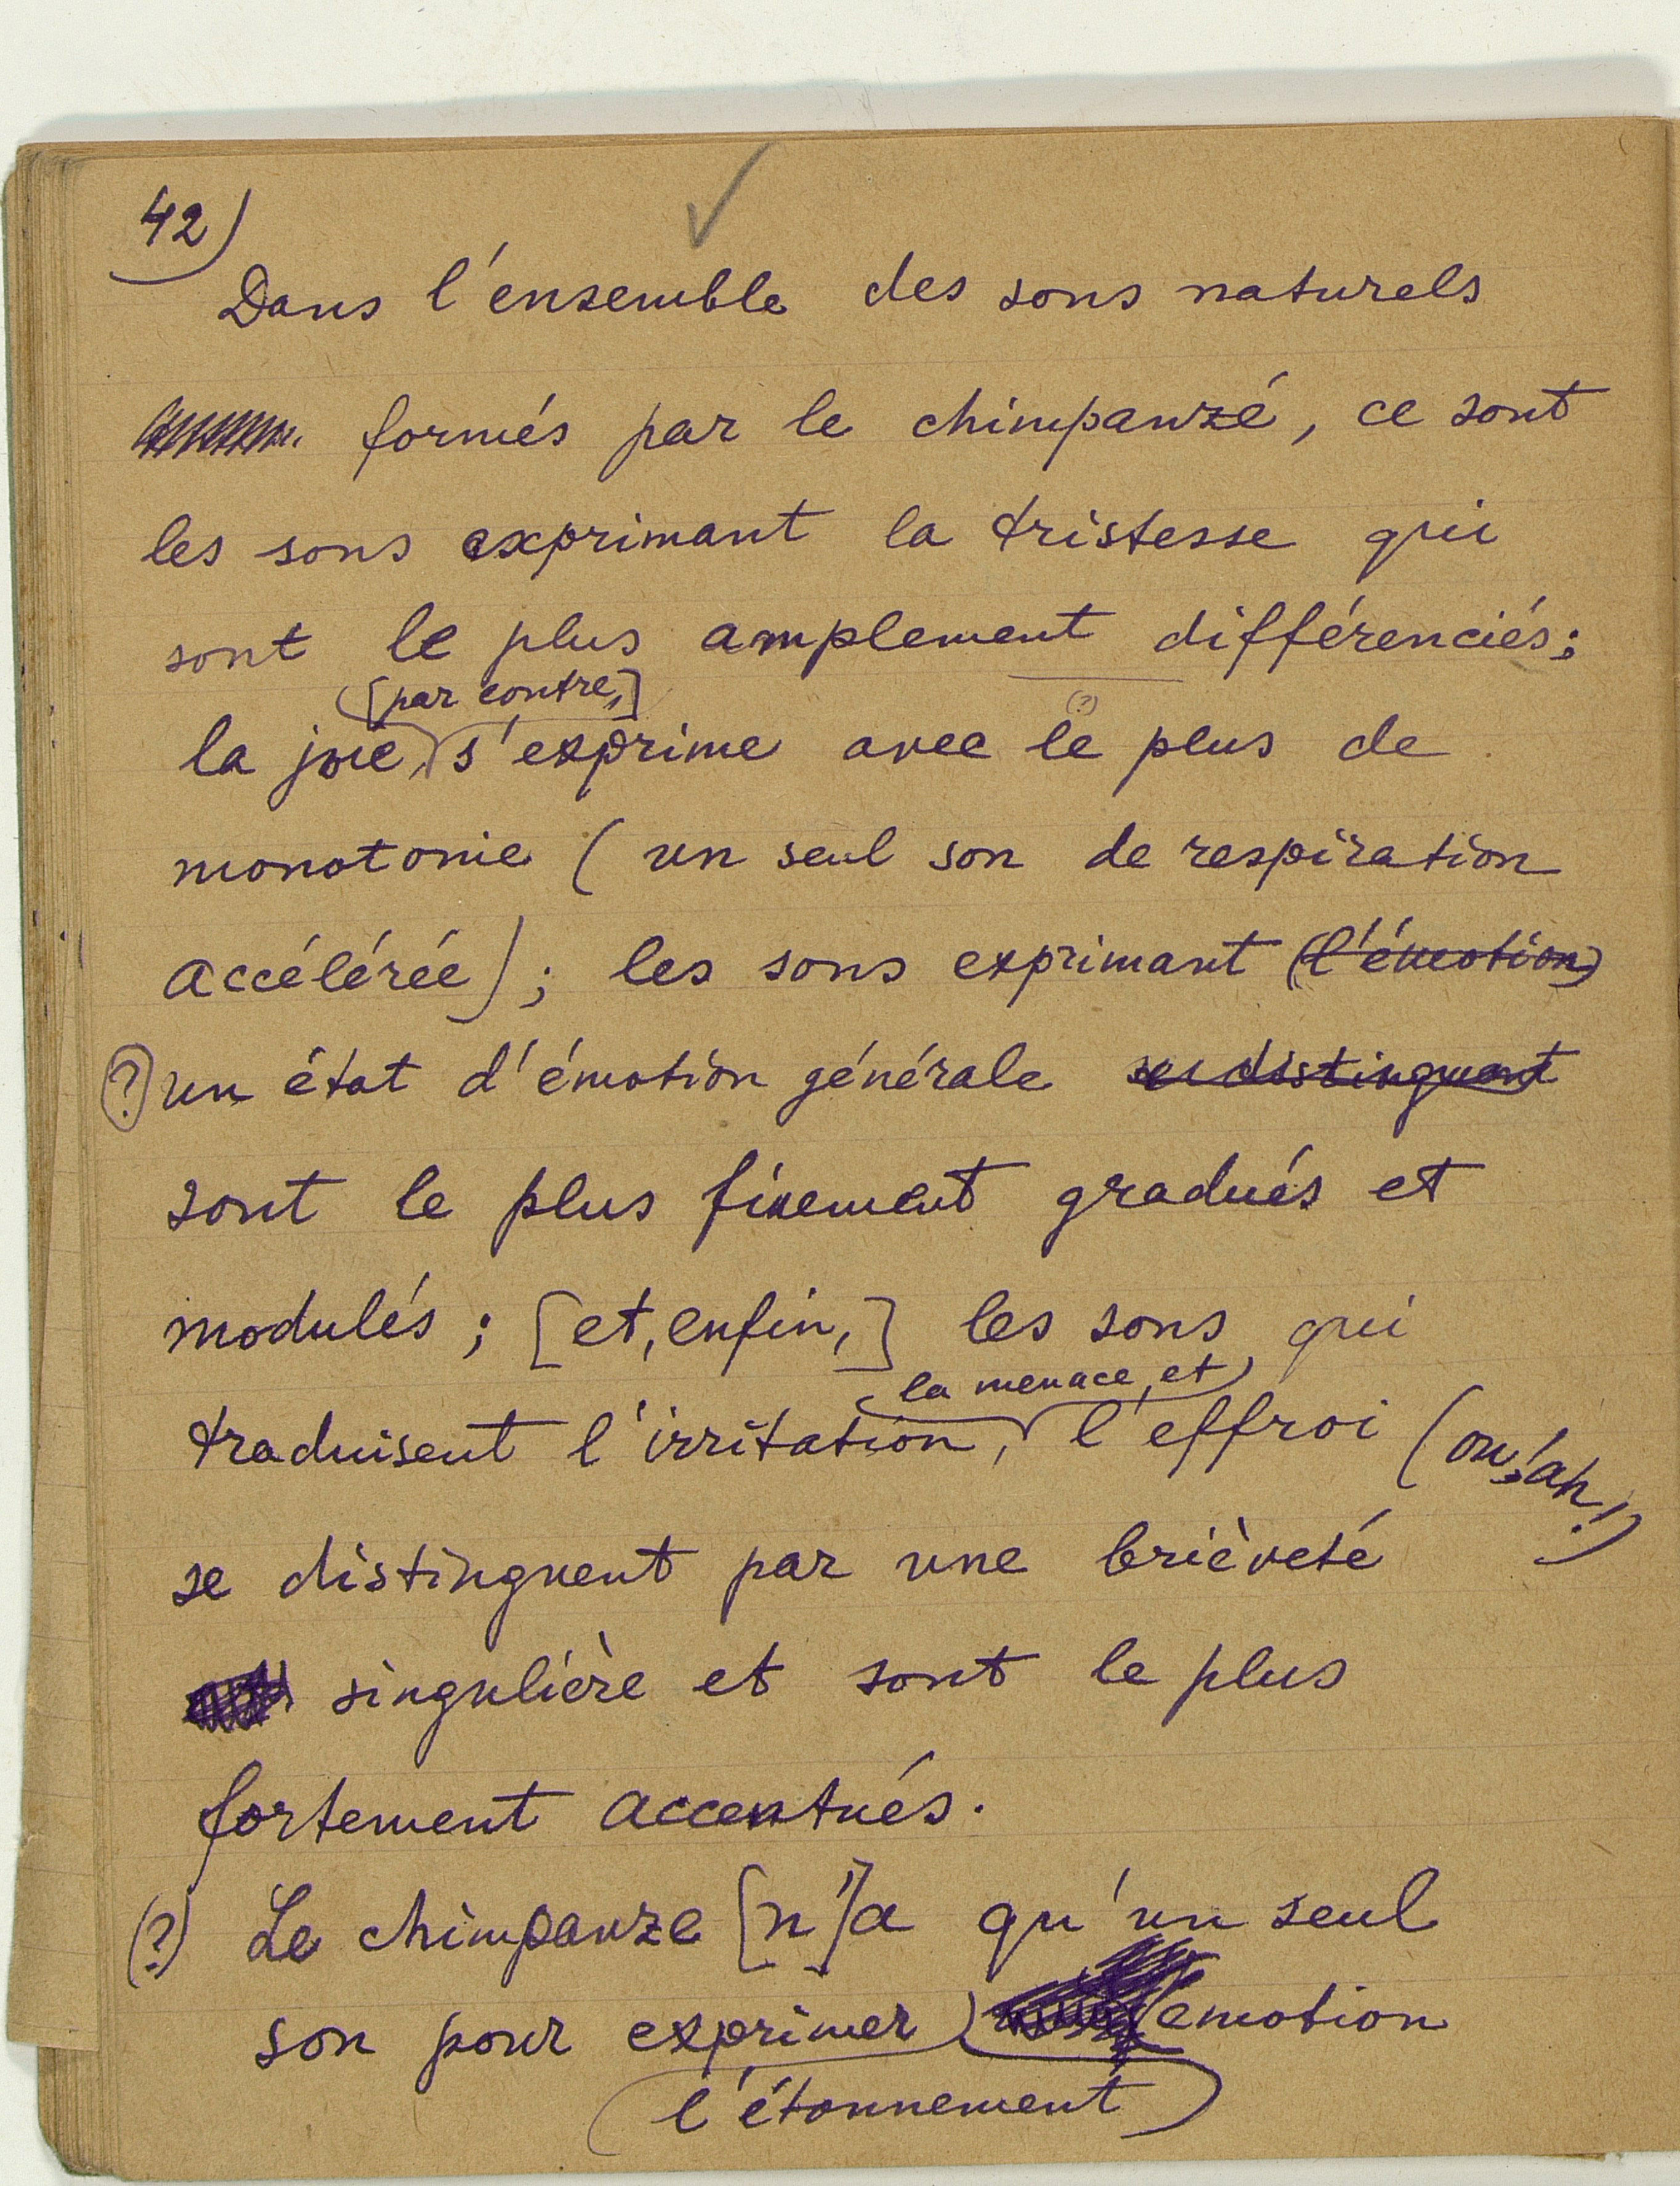 42)
Dans l'ensemble des sons naturels
formés par le chimpanzé, ce sont
les sons exprimant la tristesse qui
sont le plus amplement différenciés;
[par contre,]
(?)
la joie, s'exprime avec le plus de
monotonie (un seul son de respiration
accélérée); les sons exprimant (l'émotion)
(?) un état d'émotion générale se distinguent
sont le plus finement gradués et
modulés; [et, enfin,] les sons qui
la menace, et
traduisent l'irritation, l'effroi (ou, ah!)
se distinguent par une brièveté
singulière et sont le plus
fortement accentués.
(?) Le chimpanze [n']a qu'un seul
son pour exprimer emotion
l'étonnement